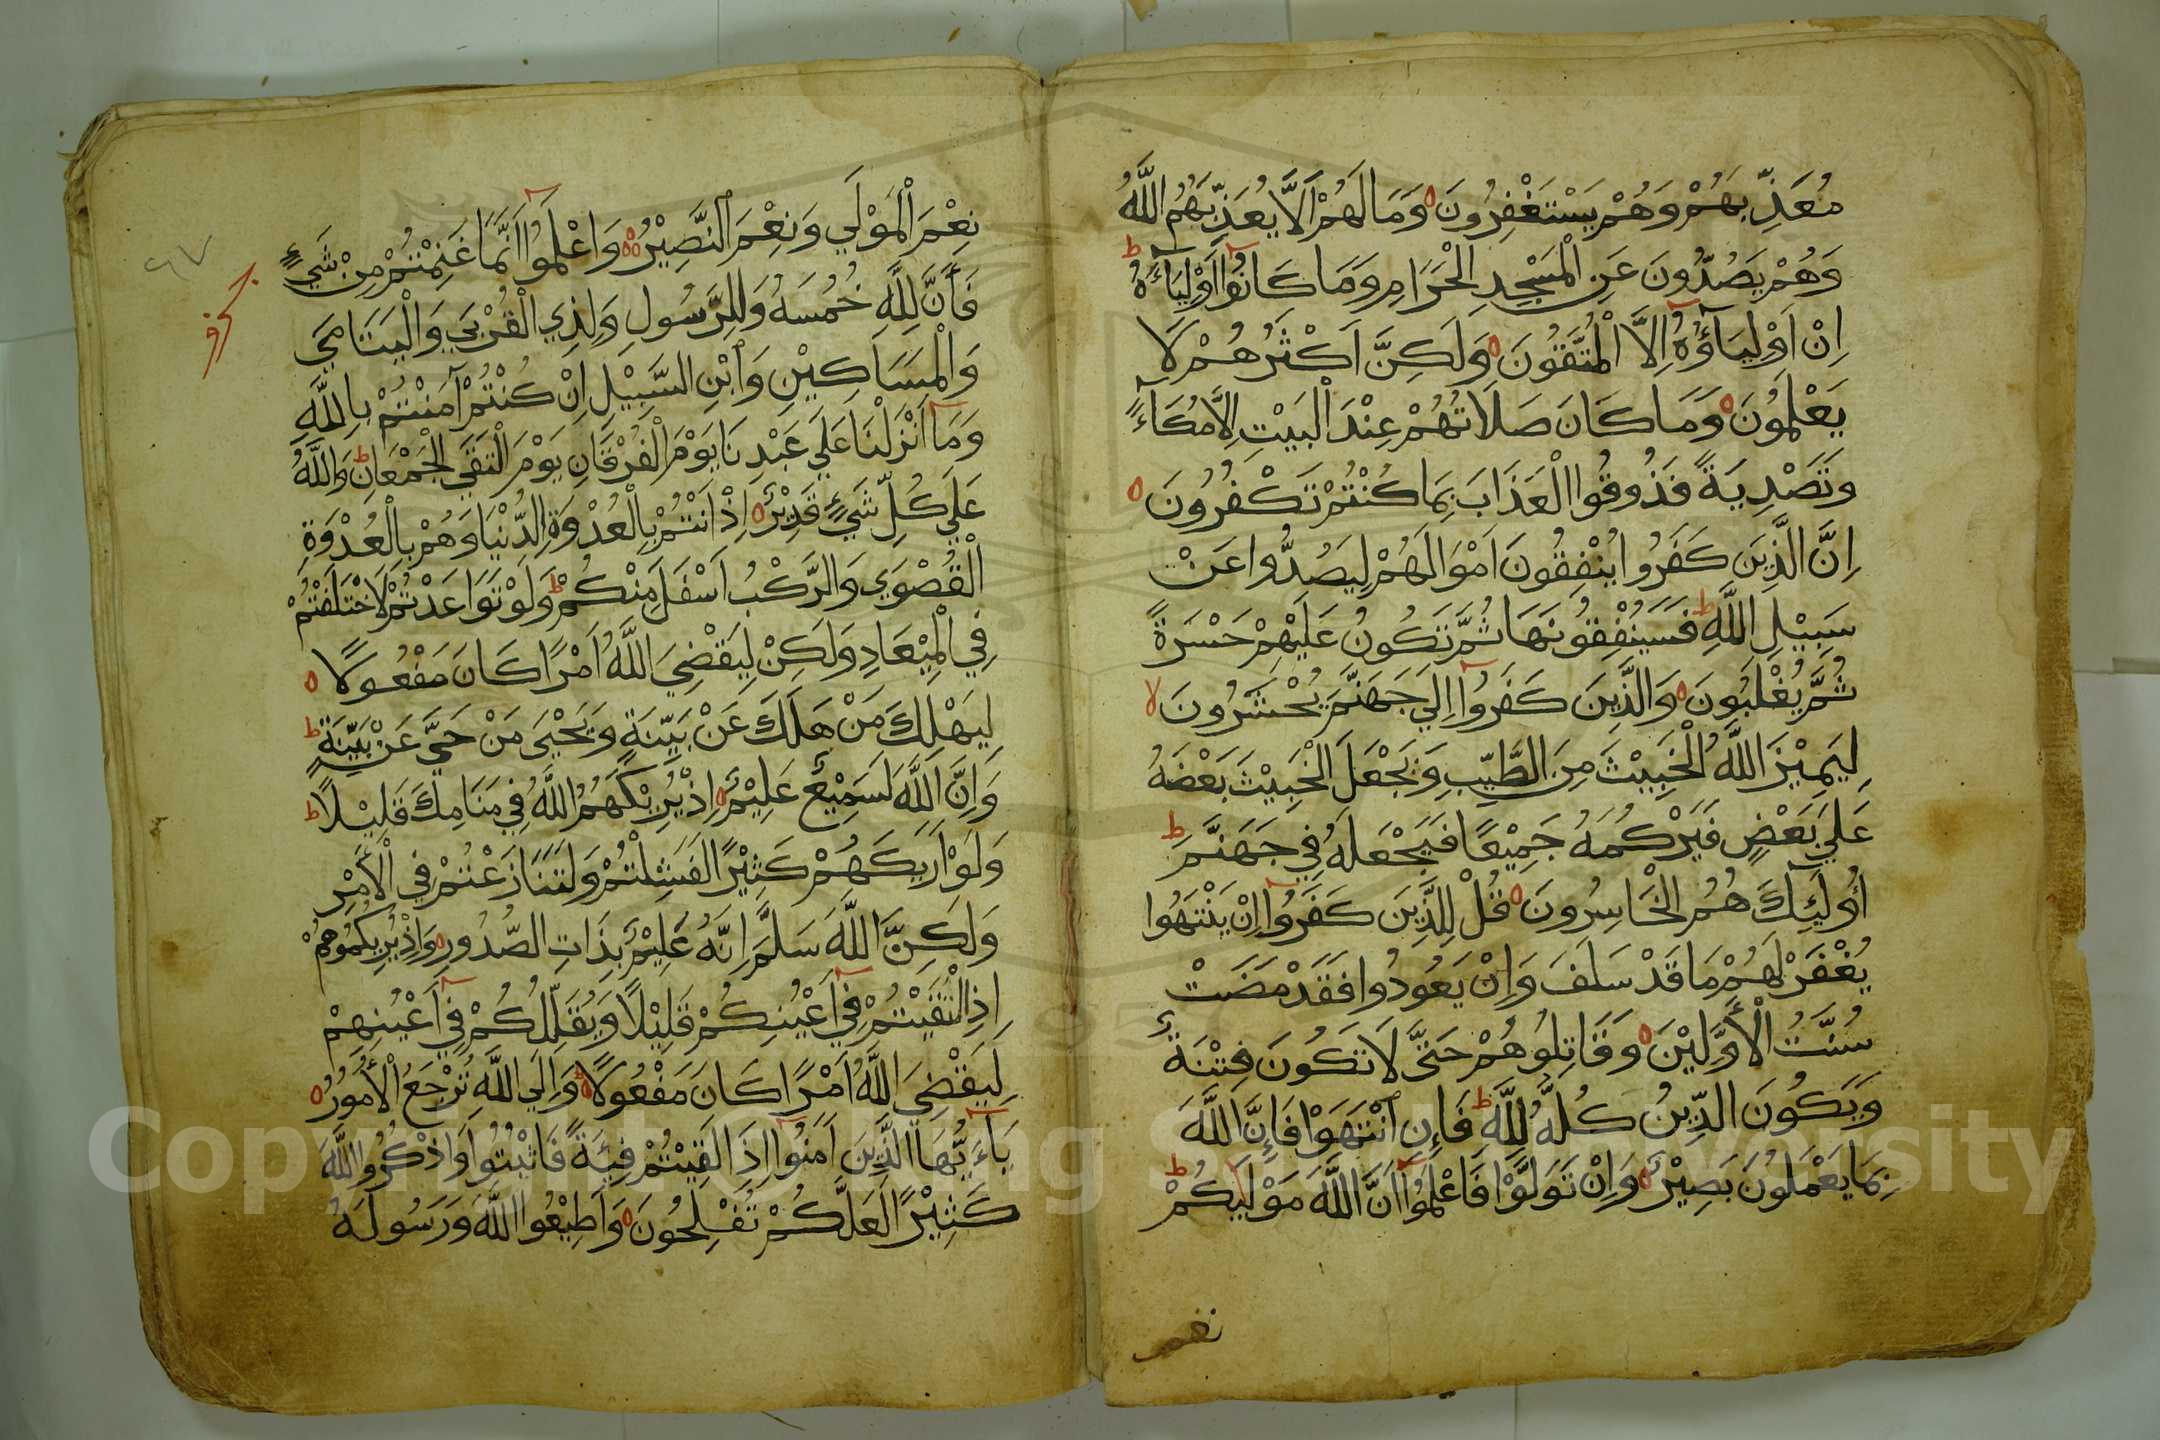 مُعَذِّبَهُمْ وَهُمْ يَسْتَغْفِرُونَ ه وَمَا لَهُمْ اَلَّا يُعَذِّبَهُمُ اللَّهُ
وَهُمْ يَصُدُّونَ عَنِ الْمَسْجِدِ الْحَرَامِ وَمَا كَانُوٓا اَوْلِيَآءَهُ ط
اِنْ اَوْلِيَآؤُهُٓ اِلَّا الْمُتَّقُونَ ه وَلَكِنَّ اَكْثَرَهُمْ لَا
يَعْلَمُونَ ه وَمَا كَانَ صَلَاتُهُمْ عِنْدَ الْبَيْتِ اِلَّا مُكَآءً
وَتَصْدِيَةً فَذُوقُوا الْعَذَابَ بِمَا كُنْتُمْ تَكْفُرُونَ ه
اِنَّ الَّذِينَ كَفَرُوا يُنْفِقُونَ اَمْوَالَهُمْ لِيَصُدُّوا عَنْ
سَبِيْلِ اللَّهِ ط فَسَيُنْفِقُونَهَا ثُمَّ تَكُونُ عَلَيْهِمْ حَسْرَةً
ثُمَّ يُغْلَبُونَ ه وَالَّذِينَ كَفَرُوٓا اِلَي جَهَنَّمَ يُحْشَرُونَ لا
لِيَمِيْزَ اللَّهُ الْخَبِيْثَ مِنَ الطَّيِّبِ وَيَجْعَلَ الْخَبِيْثَ بَعْضَهُ
عَلَي بَعْضٍ فَيَرْكُمَهُ جَمِيْعًا فَيَجْعَلَهُ فِي جَهَنَّمَ ط
أُولَٓئِكَ هُمُ الْخَاسِرُونَ ه قُلْ لِلَّذِينَ كَفَرُوٓا اِنْ يَنْتَهُوا
يُغْفَرْ لَهُمْ مَا قَدْ سَلَفَ وَاِنْ يَعُودُوا فَقَدْ مَضَتْ
سُنَّتُ الْأَوَّلِيْنَ ه وَقَاتِلُوهُمْ حَتَّي لَا تَكُونَ فِتْنَةٌ
وَيَكُونَ الدِّينُ كُلُّهُ لِلَّهِ ط فَاِنِ انْتَهَوْا فَاِنَّ اللَّهَ
بِمَا يَعْمَلُونَ بَصِيْرٌ ه وَاِنْ تَوَلَّوْا فَاعْلَمُوٓا اَنَّ اللَّهَ مَوْلَيكُمْ ط
نعم
نِعْمَ الْمَوْلَي وَنِعْمَ النَّصِيْرُ ه وَاعْلَمُوٓا اَنَّمَا غَنِمْتُمْ مِنْ شَيْءٍ
فَأَنَّ لِلَّهِ خُمُسَهُ وَلِلرَّسُولِ وَلِذِي الْقُرْبَي وَالْيَتَامَي
وَالْمَسَاكِيْنِ وَابْنِ السَّبِيْلِ اِنْ كُنْتُمْ آمَنْتُمْ بِاللَّهِ
وَمَآ اَنْزَلْنَا عَلَي عَبْدِنَا يَوْمَ الْفُرْقَانِ يَوْمَ الْتَقَي الْجَمْعَانِ ط وَاللَّهُ
عَلَي كُلِّ شَيْءٍ قَدِيْرٌ ه اِذْ اَنْتُمْ بِالْعُدْوَةِ الدُّنْيَا وَهُمْ بِالْعُدْوَةِ
الْقُصْوَي وَالرَّكْبُ اَسْفَلَ مِنْكُمْ ط وَلَوْ تَوَاعَدْتُمْ لَاخْتَلَفْتُمْ
فِي الْمِيْعَادِ وَلَكِنْ لِيَقْضِيَ اللَّهُ اَمْرًا كَانَ مَفْعُولًا ه
لِيَهْلِكَ مَنْ هَلَكَ عَنْ بَيِّنَةٍ وَيَحْيَي مَنْ حَيَّ عَنْ بَيِّنَةٍ ط
وَاِنَّ اللَّهَ لَسَمِيْعٌ عَلِيْمٌ ه اِذْ يُرِيْكَهُمُ اللَّهُ فِي مَنَامِكَ قَلِيْلًا ط
وَلَوْ اَرَيكَهُمْ كَثِيْرًا لَفَشِلْتُمْ وَلَتَنَازَعْتُمْ فِي الْأَمْرِ
وَلَكِنَّ اللَّهَ سَلَّمَ اِنَّهُ عَلِيْمٌ بِذَاتِ الصُّدُورِ ه وَاِذْ يُرِيْكُمُوهُمْ
اِذِ الْتَقَيْتُمْ فِيٓ اَعْيُنِكُمْ قَلِيْلًا وَيُقَلِّلُكُمْ فِيٓ اَعْيُنِهِمْ
لِيَقْضِيَ اللَّهُ اَمْرًا كَانَ مَفْعُولًا ط وَاِلَي اللَّهِ تُرْجَعُ الْأُمُورُ ه
يَآءَيُّهَا الَّذِينَ اَمَنُوٓا اِذَا لَقِيْتُمْ فِئَةً فَاثْبُتُوا وَاذْكُرُوا اللَّهَ
كَثِيْرًا لَعَلَّكُمْ تُفْلِحُونَ ه وَاَطِيْعُوا اللَّهَ وَرَسُولَهُ
Copyright © King Saud University